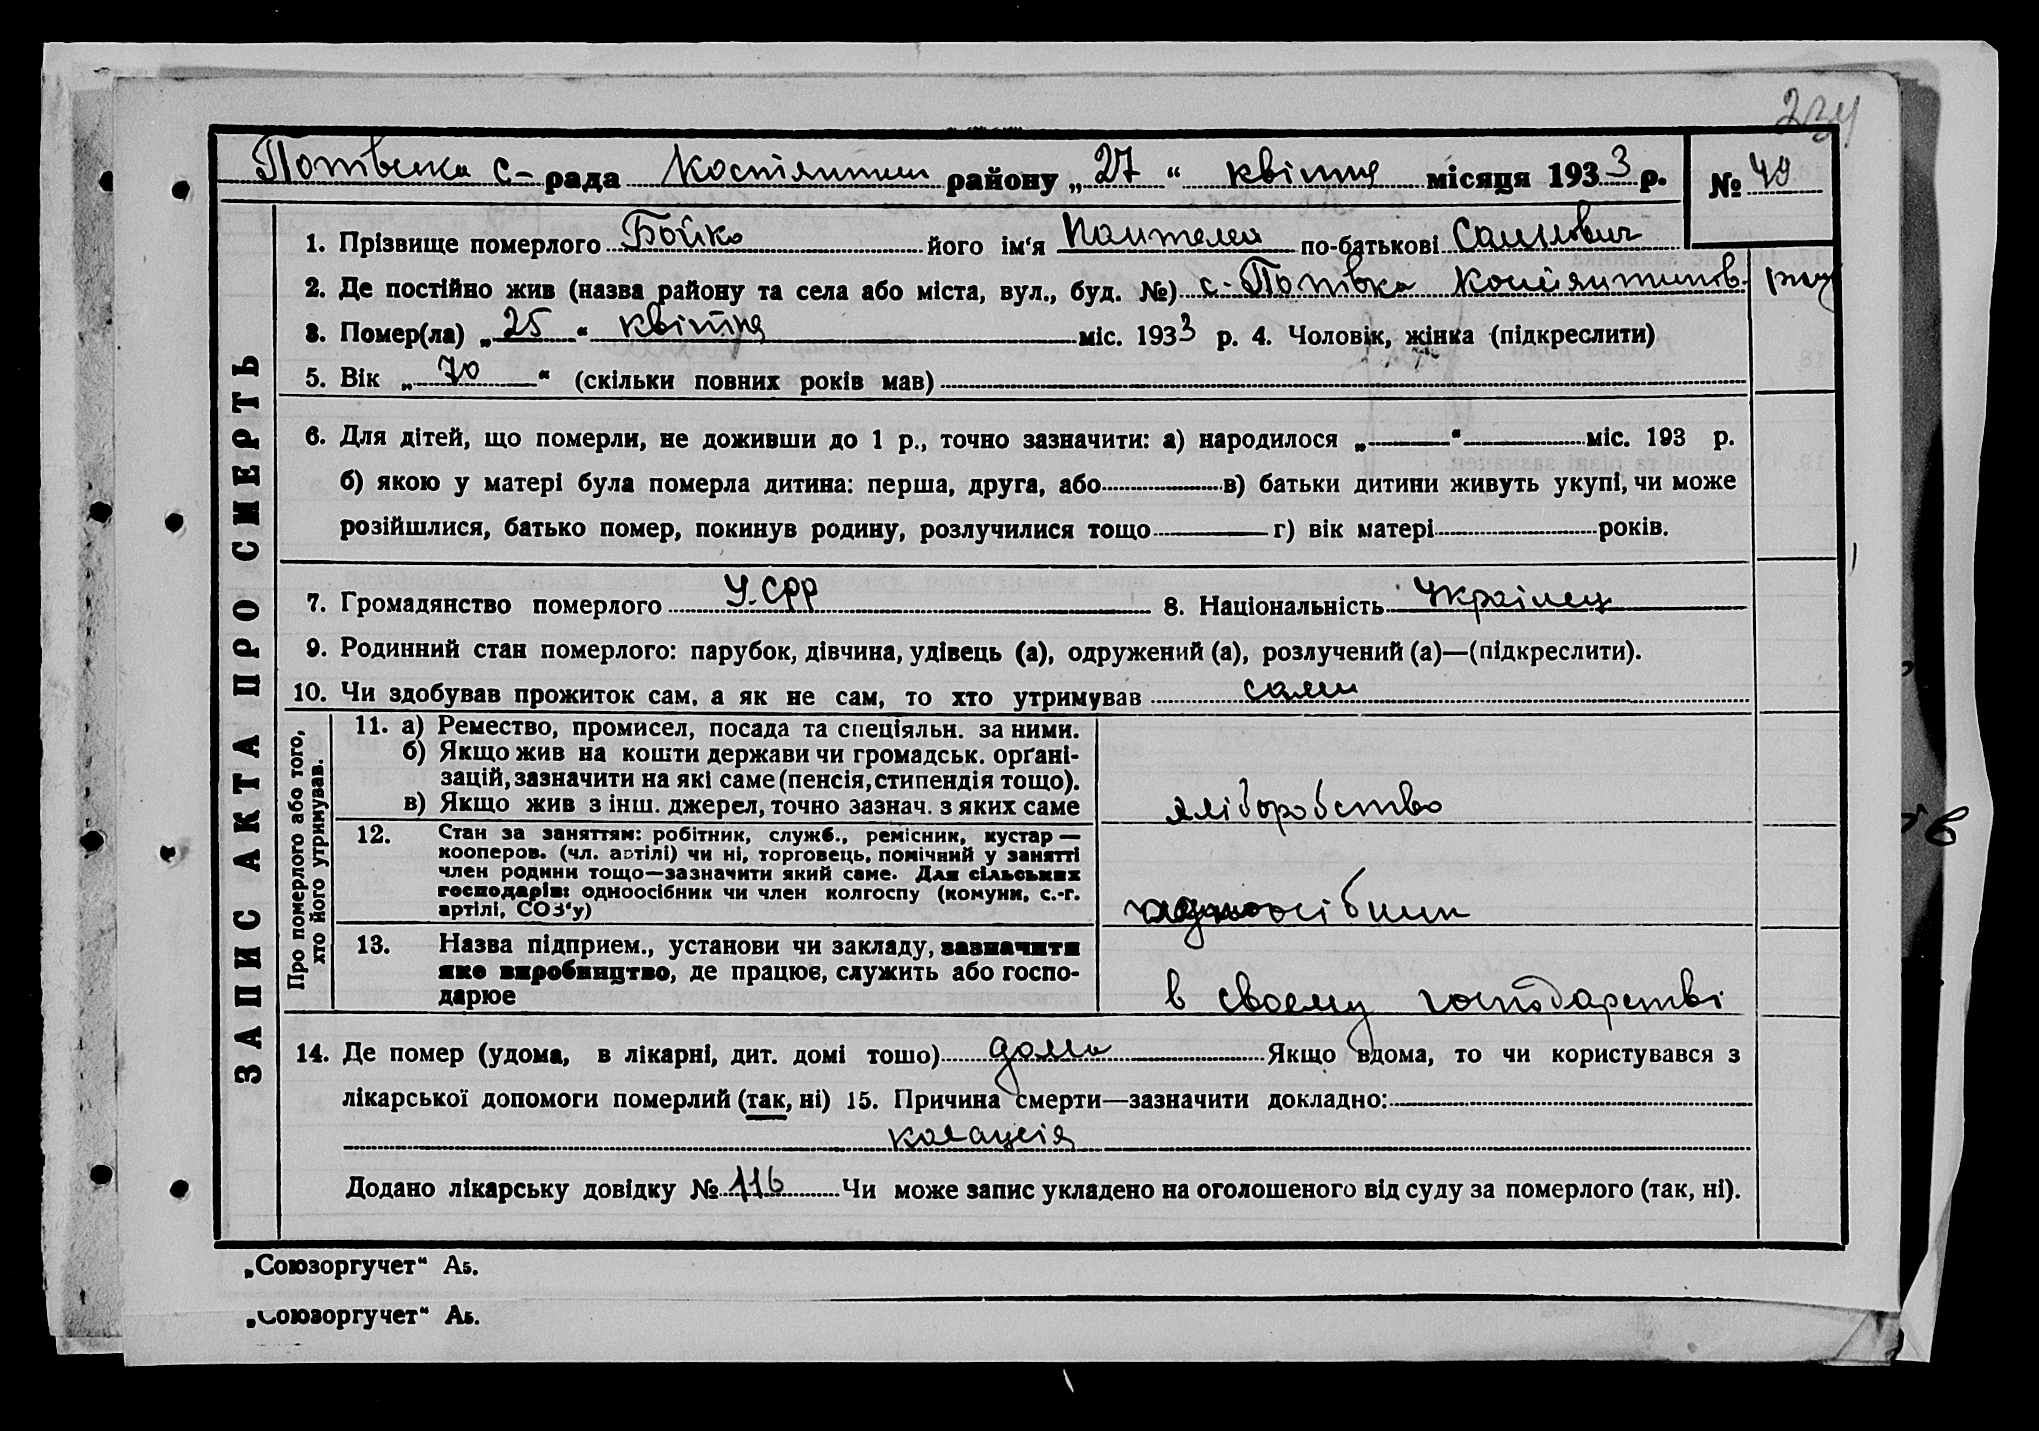 234
Потвська с-рада Костянтин району „27“ квітня місяця 1933 р. № 49
1. Прізвище померлого Бойко його ім‘я Пантелей по-батькові
2. Де постійно жив (назва району та села або міста, вул., буд. №) с. Потвка Костянтинов.
3. Помер(ла) „25“ квітня міс. 1933 р. 4. Чоловік, жінка (підкреслити)
5. Вік „70“ (скільки повних років мав)
6. Для дітей, що померли, не доживши до 1 р., точно зазначити: а) народилося „ “ міс. 193 р.
б) якою у матері була померла дитина: перша, друга, або в) батьки дитини живуть укупі, чи може
розійшлися, батько помер, покинув родину, розлучилися тощо г) вік матері років.
7. Громадянство померлого У.СРР 8. Національність Українец
9. Родинний стан померлого: парубок, дівчина, удівець (а), одружений (а), розлучений (а)—(підкреслити).
10. Чи здобував прожиток сам, а як не сам, то хто утримував сами
ЗАПИС АКТА ПРО СМЕРТЬ
Про померлого або того,
хто його утримував.
11. а) Ремество, промисел, посада та спеціяльн. за ними.
б) Якщо жив на кошти держави чи громадськ. орґані-
зацій, зазначити на які саме (пенсія, стипендія тощо).
в) Якщо жив з інш. джерел, точно зазнач. з яких саме
хліборобство
12. Стан за заняттям: робітник, служб., ремісник, кустар —
кооперов. (чл. артілі) чи ні, торговець, помічний у занятті
член родини тощо—зазначити який саме. Для сільських
господарів: одноосібник чи член колгоспу (комуни, с.-г.
артілі, СОЗ‘у)
одноосібник
13. Назва підприєм., установи чи закладу, зазначити
яке виробництво, де працює, служить або госпо-
дарює
в своему господарстві
14. Де помер (удома, в лікарні, дит. домі тошо) дома Якщо вдома, то чи користувався з
лікарської допомоги померлий (так, ні) 15. Причина смерти—зазначити докладно:
Додано лікарську довідку № 116 Чи може запис укладено на оголошеного від суду за померлого (так, ні).
„Союзоргучет“ А5.
„Союзоргучет“ А5.